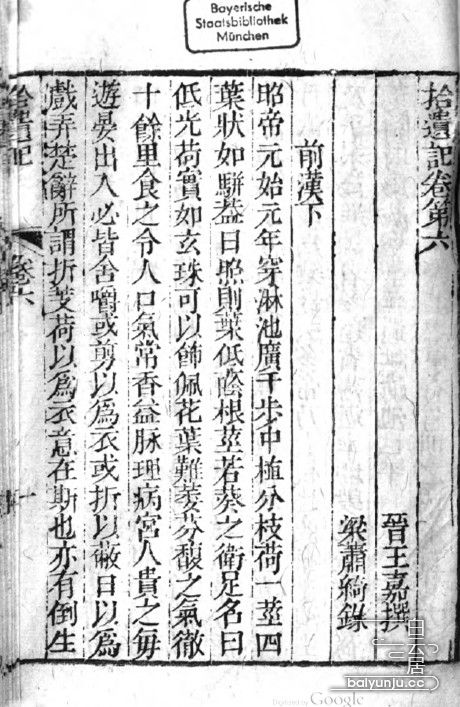 Bayerische
Staatsbibliothek
München
拾遺記卷第六
晉王嘉撰
梁蕭綺錄
前漢下
昭帝元始元年穿淋池廣千步中植分枝荷一莖四
葉狀如駢葢日照則葉低蔭根莖若葵之衛足名曰
低光荷實如玄珠可以飾佩花葉難萎芬馥之氣徹
十餘里食之令人口氣常香益脉理病宮人貴之毎
遊晏出入必皆含嚼或剪以爲衣或折以蔽日以爲
戲弄楚辭所謂折芰荷以爲衣意在斯也亦有倒生
拾遺記
卷六
一
白云居
baiyunju.cc
Digitized by Google